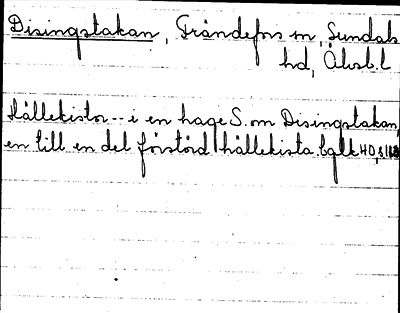 Disingstakan, Frändefors sn, Sundals
hd, Älvsb. l
Hällekistor -- i en hage S. om Disingstakan,
en till en del förstörd hällekista.